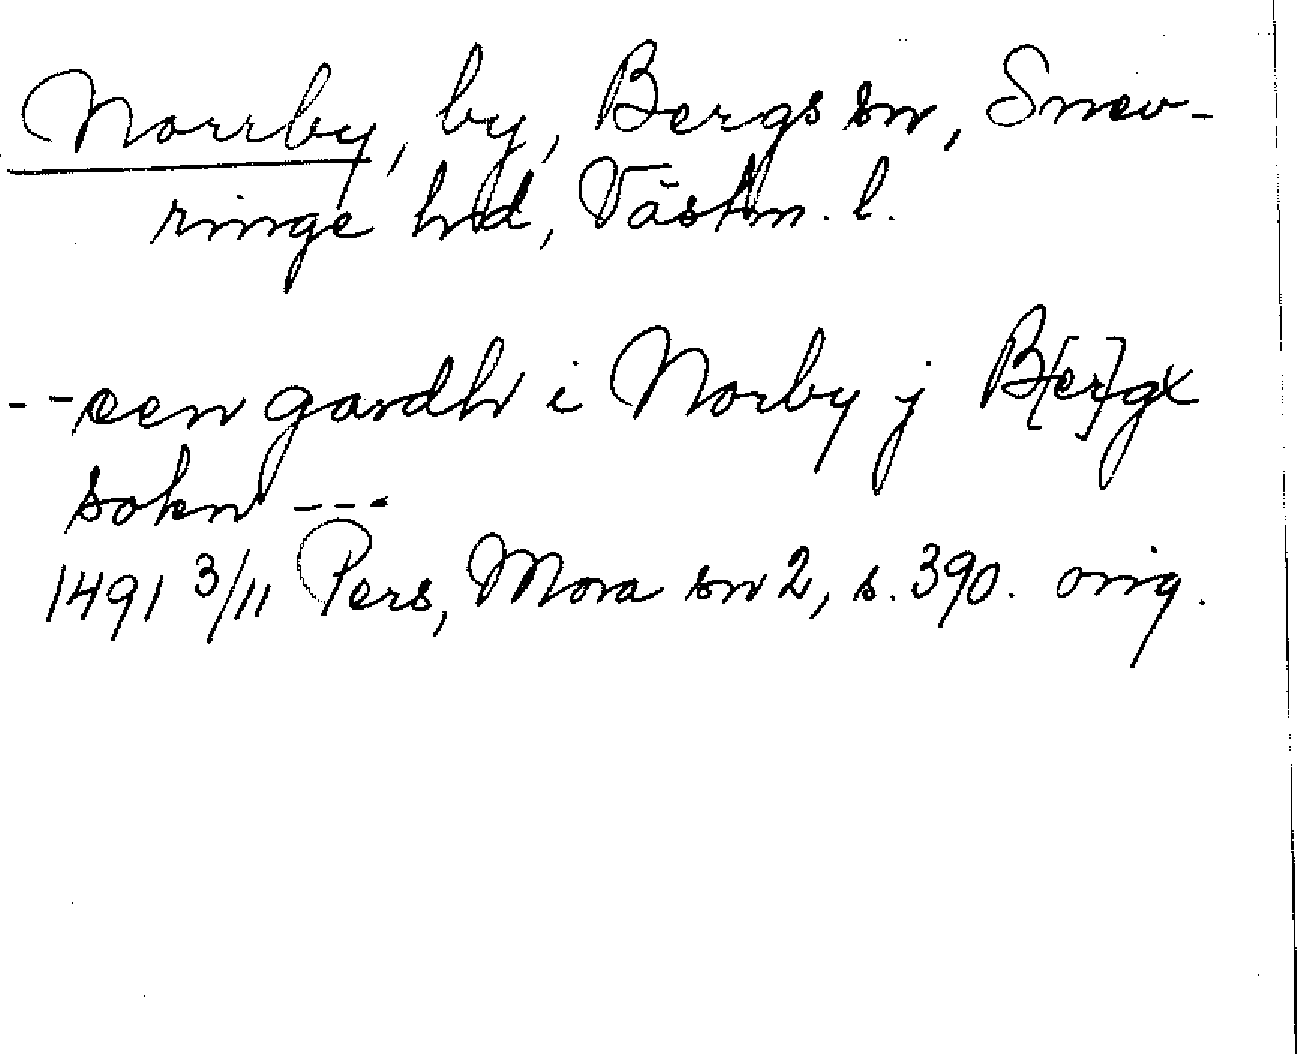 Norrby, by, Bergs sn, Snev-
ringe hd, Västm. l.
--een gardh i Norby j B[er]gx
sokn ---
1491 3/11 Pers, Mora sn 2, s. 390. orig.